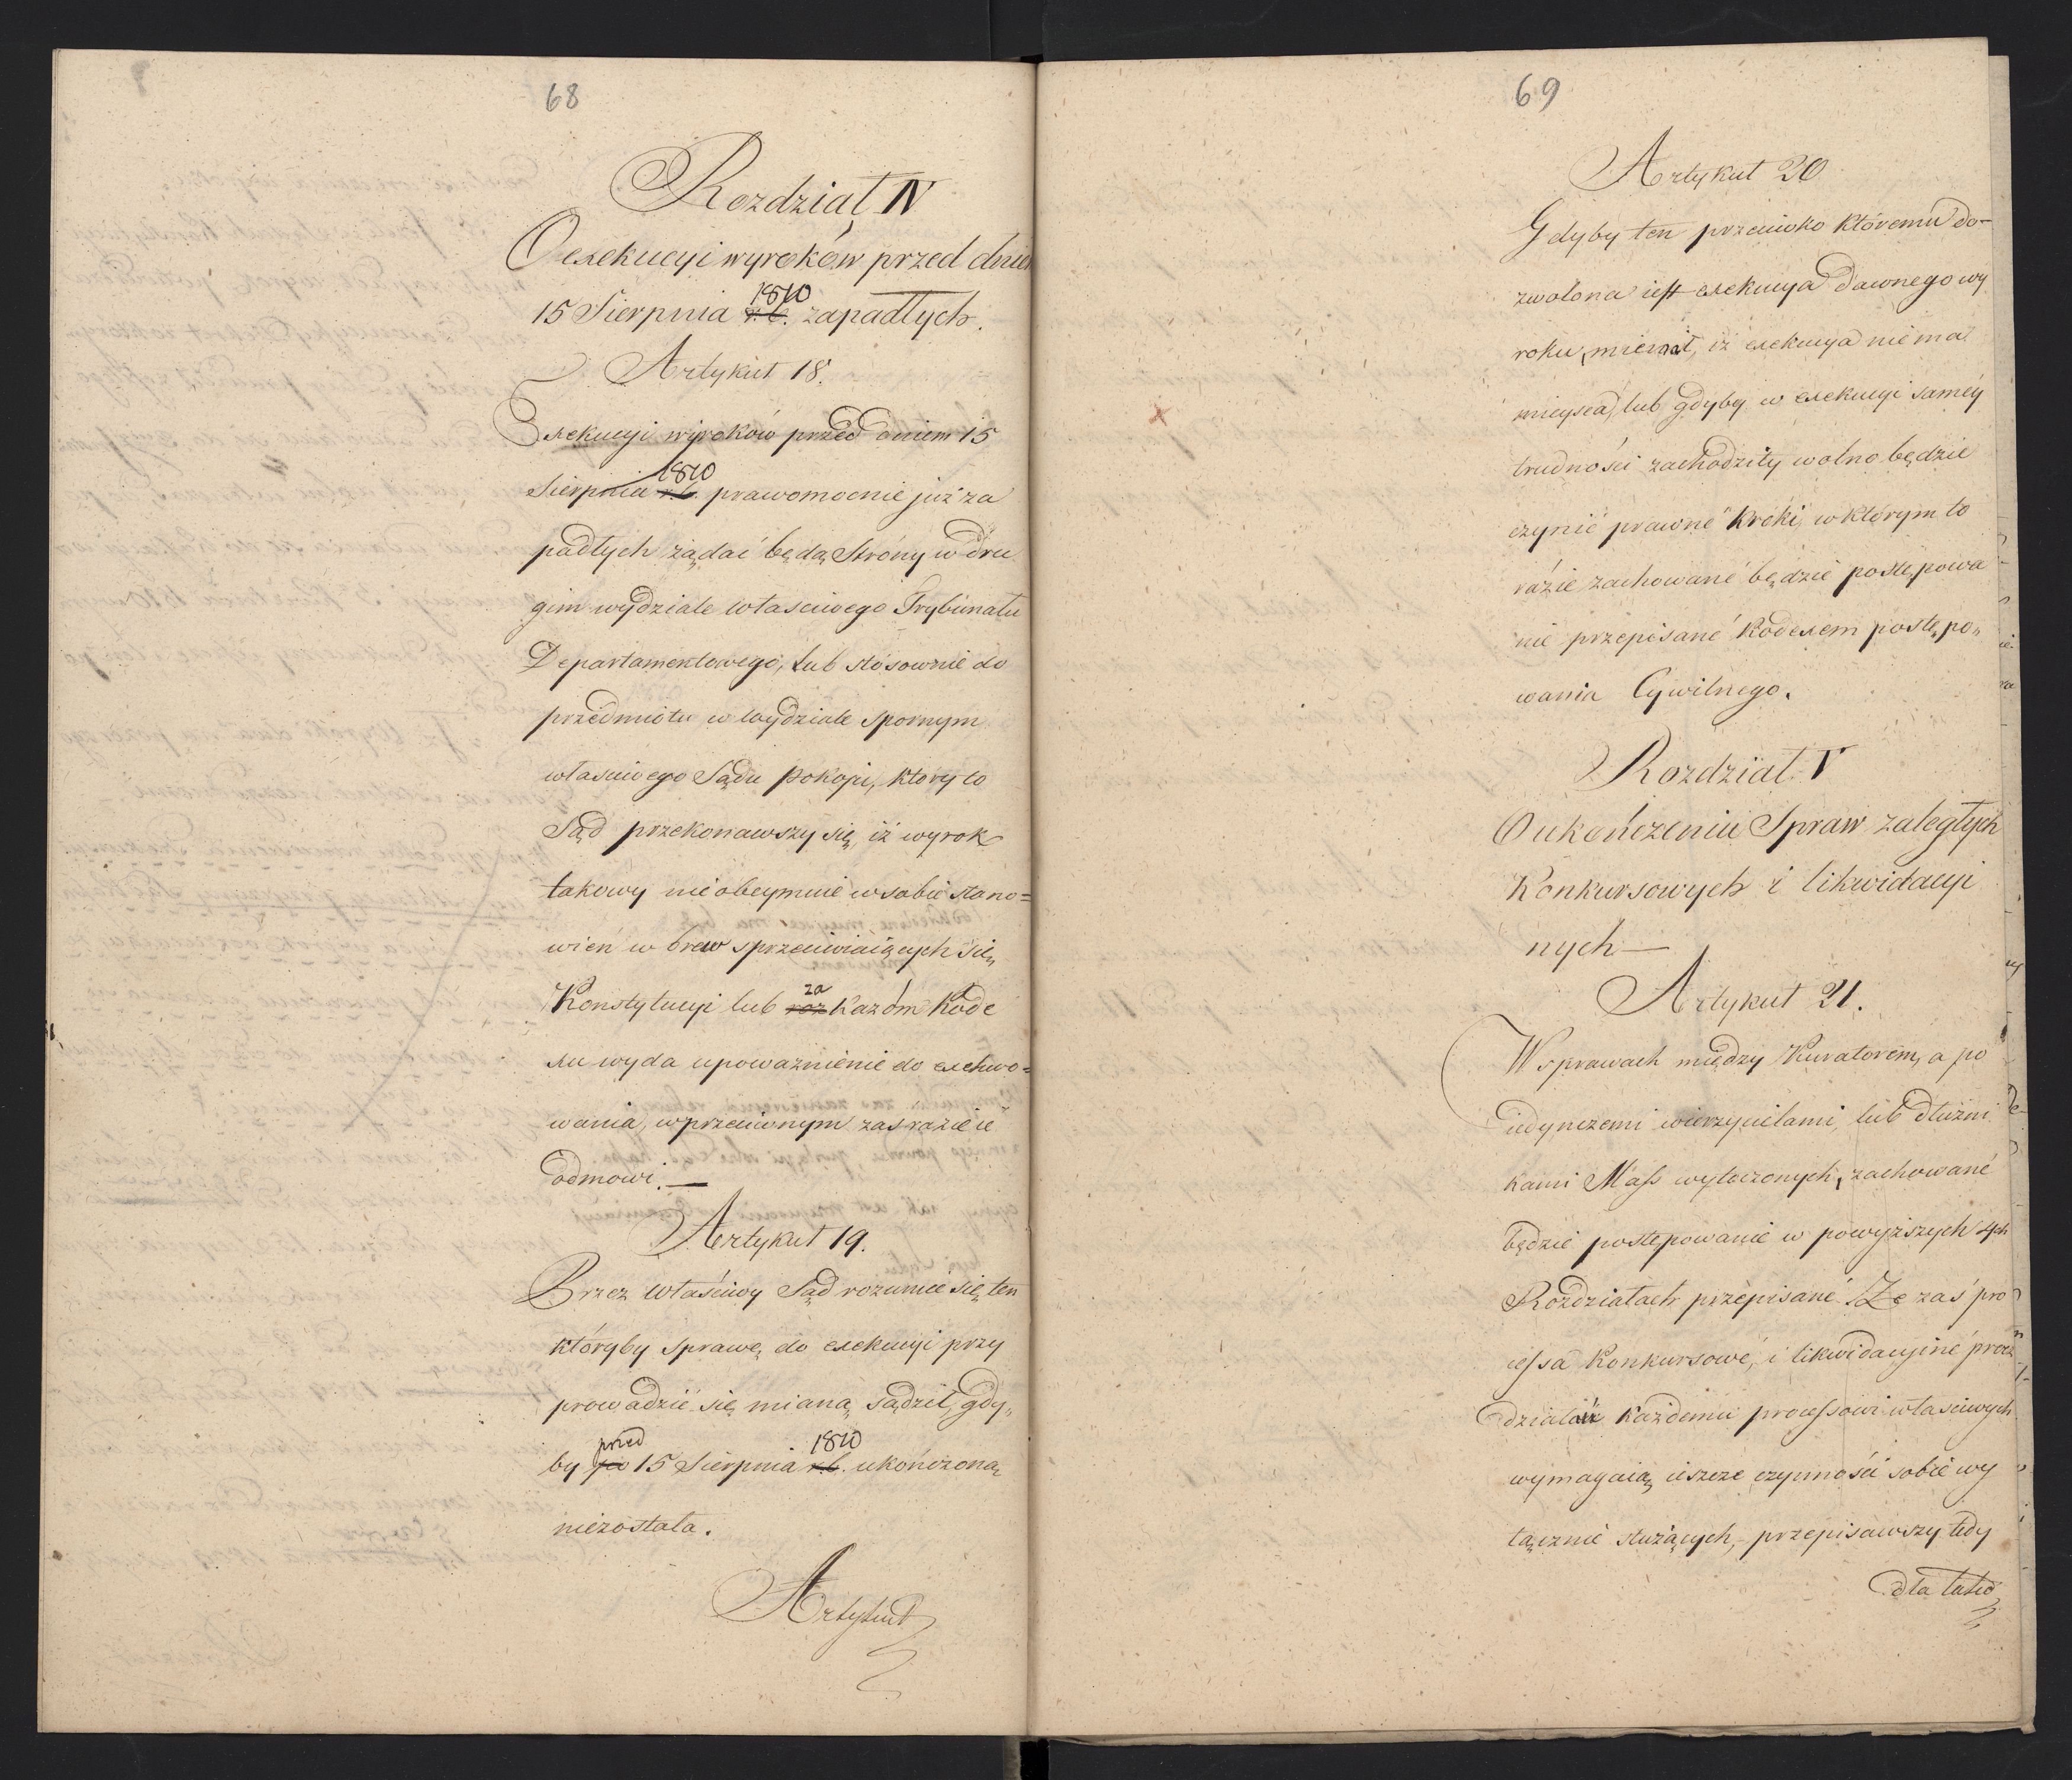 68
Rozdział IV
O exekucyi wyroków przed dniem
15 Sierpnia r. b. 1810 zapadłych.
Artykuł 18.
Exekucyi wyroków przed dniem 15
Sierpnia r. b. 1810 prawomocnie już za
padłych żądać będą Strony w dru
gim wydziale własciwego Trybunału
Departamentowego, lub stósownie do
przedmiotu w wydziale spornym
własciwego Sądu Pokoju, który to
Sąd przekonawszy się, iż wyrok
takowy nie obeymuie w sobie stano=
wień w brew sprzeciwiaiących się
Konstytucyi lub roz za kazóm Kode
xu wyda upoważnienie do exekwo=
wania, w przeciwnym zaś razie ie
odmowi. —
Artykuł 19.
Przez właściwy Sąd rozumie się ten
któryby sprawę do exekucyi przy
prowadzić się mianą sądził, gdy„
by po przed 15 Sierpnia r. b. 1810 ukończoną
niezostała.
Artykuł
69
Artykuł 20
Gdyby ten przeciwko któremu do-
zwolona iest exekucya dawnego wy
roku, mieniał, iż exekucya nie ma
mieysca, lub gdyby w exekucyi saméy
trudności zachodziły wolno będzie
czynić prawne kroki, w którym to
rázie zachowane będzie postępowa
nie przepisané Kodexem postępo„
wania Cywilnego.
Rozdział V
O ukończeniu Spraw zaległych
Konkursowych i likwidacyi
nych —
Artykuł 21.
W sprawach między Kuratorem, a po
iedynczemi wierzycielami, lub dłużni
kami Mass wytoczonych, zachowané
będzie postępowanie w powyższych 4ch
Rozdziałach przepisané. Że zaś pro
cessa Konkursowe, i likwidacyiné prócz
działań każdemu processowi własciwych
wymagaią ieszcze czynności sobie wy
łącznie służących, przepisawszy tedy
dla